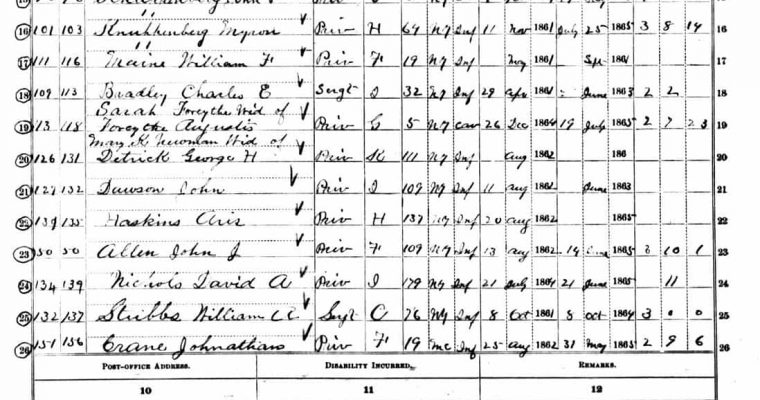 16 101 103 Knukkenberg Myron Priv H 64 NY Inf 11 Nov 1861 July 25 1865 3 8 14 16
17 111 116 Maine William F Priv F 19 NY Inf May 1861 Sep 1861 17
18 109 113 Bradley Charles E Sergt I 32 NY Inf 29 Apr 1861 June 1863 2 2 18
Sarah Forsythe Wid of
19 73 118 Forsythe Augustis Priv G 5 NY Cav 26 Dec 1864 19 July 1865 2 7 23 19
Mary K Newman Wid of
20 126 131 Detrick George H Priv K 111 NY Inf Aug 1862 186 20
21 127 132 Dawson John Priv I 109 NY Inf 11 Aug 1862 June 1863 21
22 139 135 Haskins Priv H 137 NY Inf 20 Aug 1862 1865 22
23 50 50 Allen John J Priv F 109 NY Inf 13 Aug 1862 14 June 1865 10 1 23
24 134 139 Nichols David A Priv I 179 NY Inf 21 July 1864 21 June 1865 11 24
25 132 137 Stubbs William Sergt C 76 NY Inf 8 Oct 1861 8 Oct 1864 3 0 0 25
26 151 156 Crane Johnathan Priv F 19 Me Inf 25 Aug 1862 31 May 1865 2 9 6 26
Post-office Address. Disability Incurred. Remarks.
10 11 12